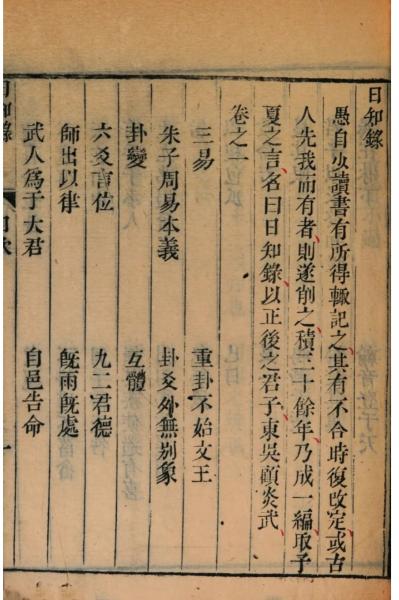 日知錄
愚自少讀書有所得輒記之其有不合時復改定或古
人先我而有者則遂削之積三十餘年乃成一編取子
夏之言名曰日知錄以正後之君子東吳顧炎武
卷之一
三易 重卦不始文王
朱子周易本義 卦爻外無別象
卦變 互體
六爻言位 九二君德
師出以律 旣雨旣處
武人爲于大君 自邑告命
日知錄 目次 一